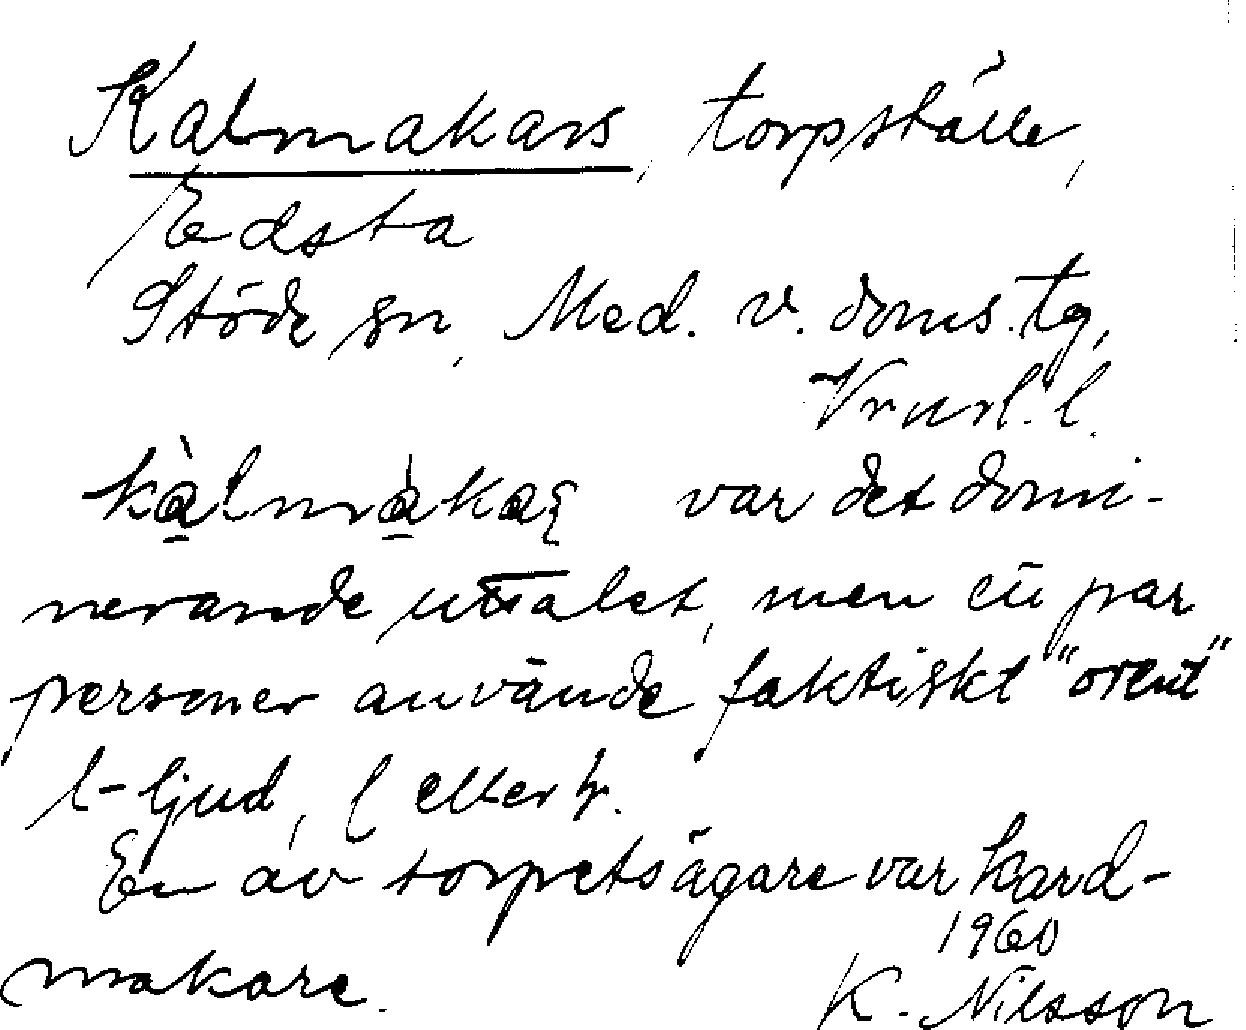 Kalmakars, torpställe,
Edsta
Stöde sn, Med. v. doms. tg,
Vrnrl. l.
kàlmàkaʂ var det domi-
nerande uttalet, men ett par
personer använde faktiskt "orent"
l-ljud, l eller hr.
En av torpets ägare var kard-
makare.
1960
K. Nilsson